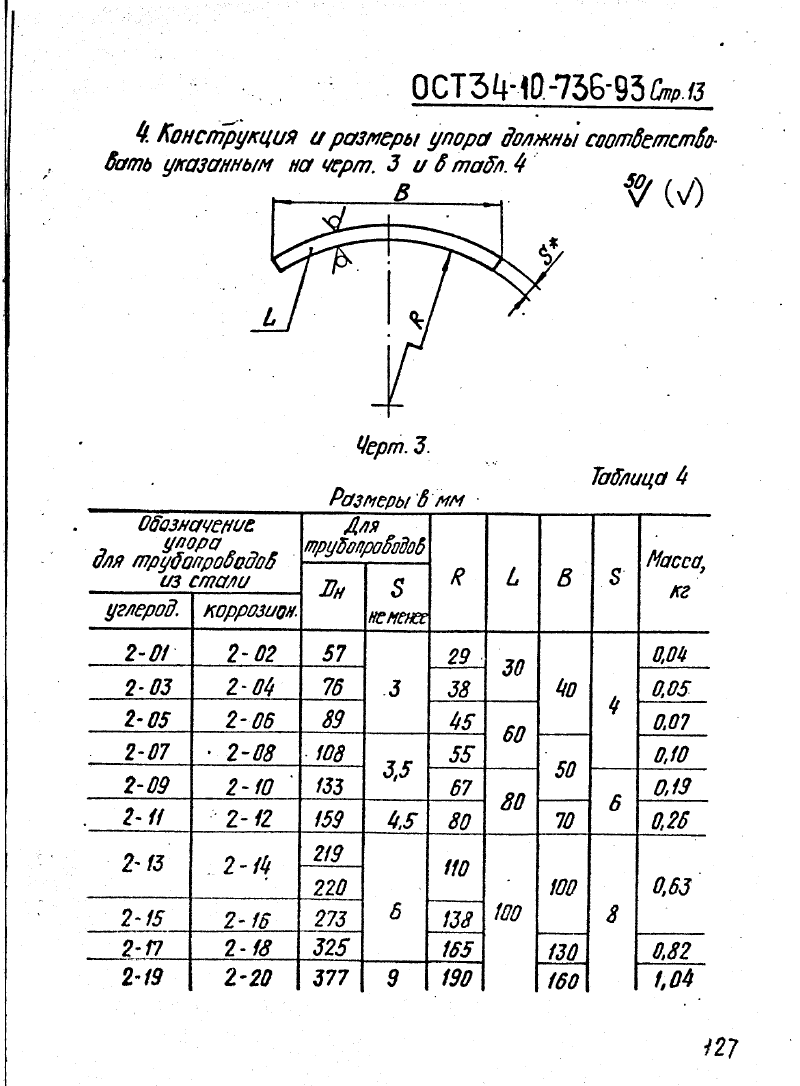 ОСТ34-10-736-93 Стр.13
4. Конструкция и размеры упора должны соответство-
вать указанным на черт. 3 и в табл. 4
50 (√)
В
S*
L
R
Черт. 3.
Таблица 4
Размеры в мм
Обозначение упора для трубопроводов из стали
Для трубопроводов
R L В S Масса, кг
углерод. коррозион. Dн S не менее
2-01 2-02 57 3 29 30 40 4 0,04
2-03 2-04 76 38 0,05
2-05 2-06 89 45 60 0,07
2-07 2-08 108 3,5 55 50 0,10
2-09 2-10 133 67 80 6 0,19
2-11 2-12 159 4,5 80 70 0,26
2-13 2-14 219 6 110 100 100 8 0,63
220
2-15 2-16 273 138
2-17 2-18 325 165 130 0,82
2-19 2-20 377 9 190 160 1,04
127